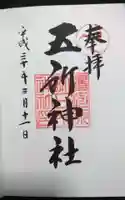 奉拝
五所神社
平成三十年三月十一日